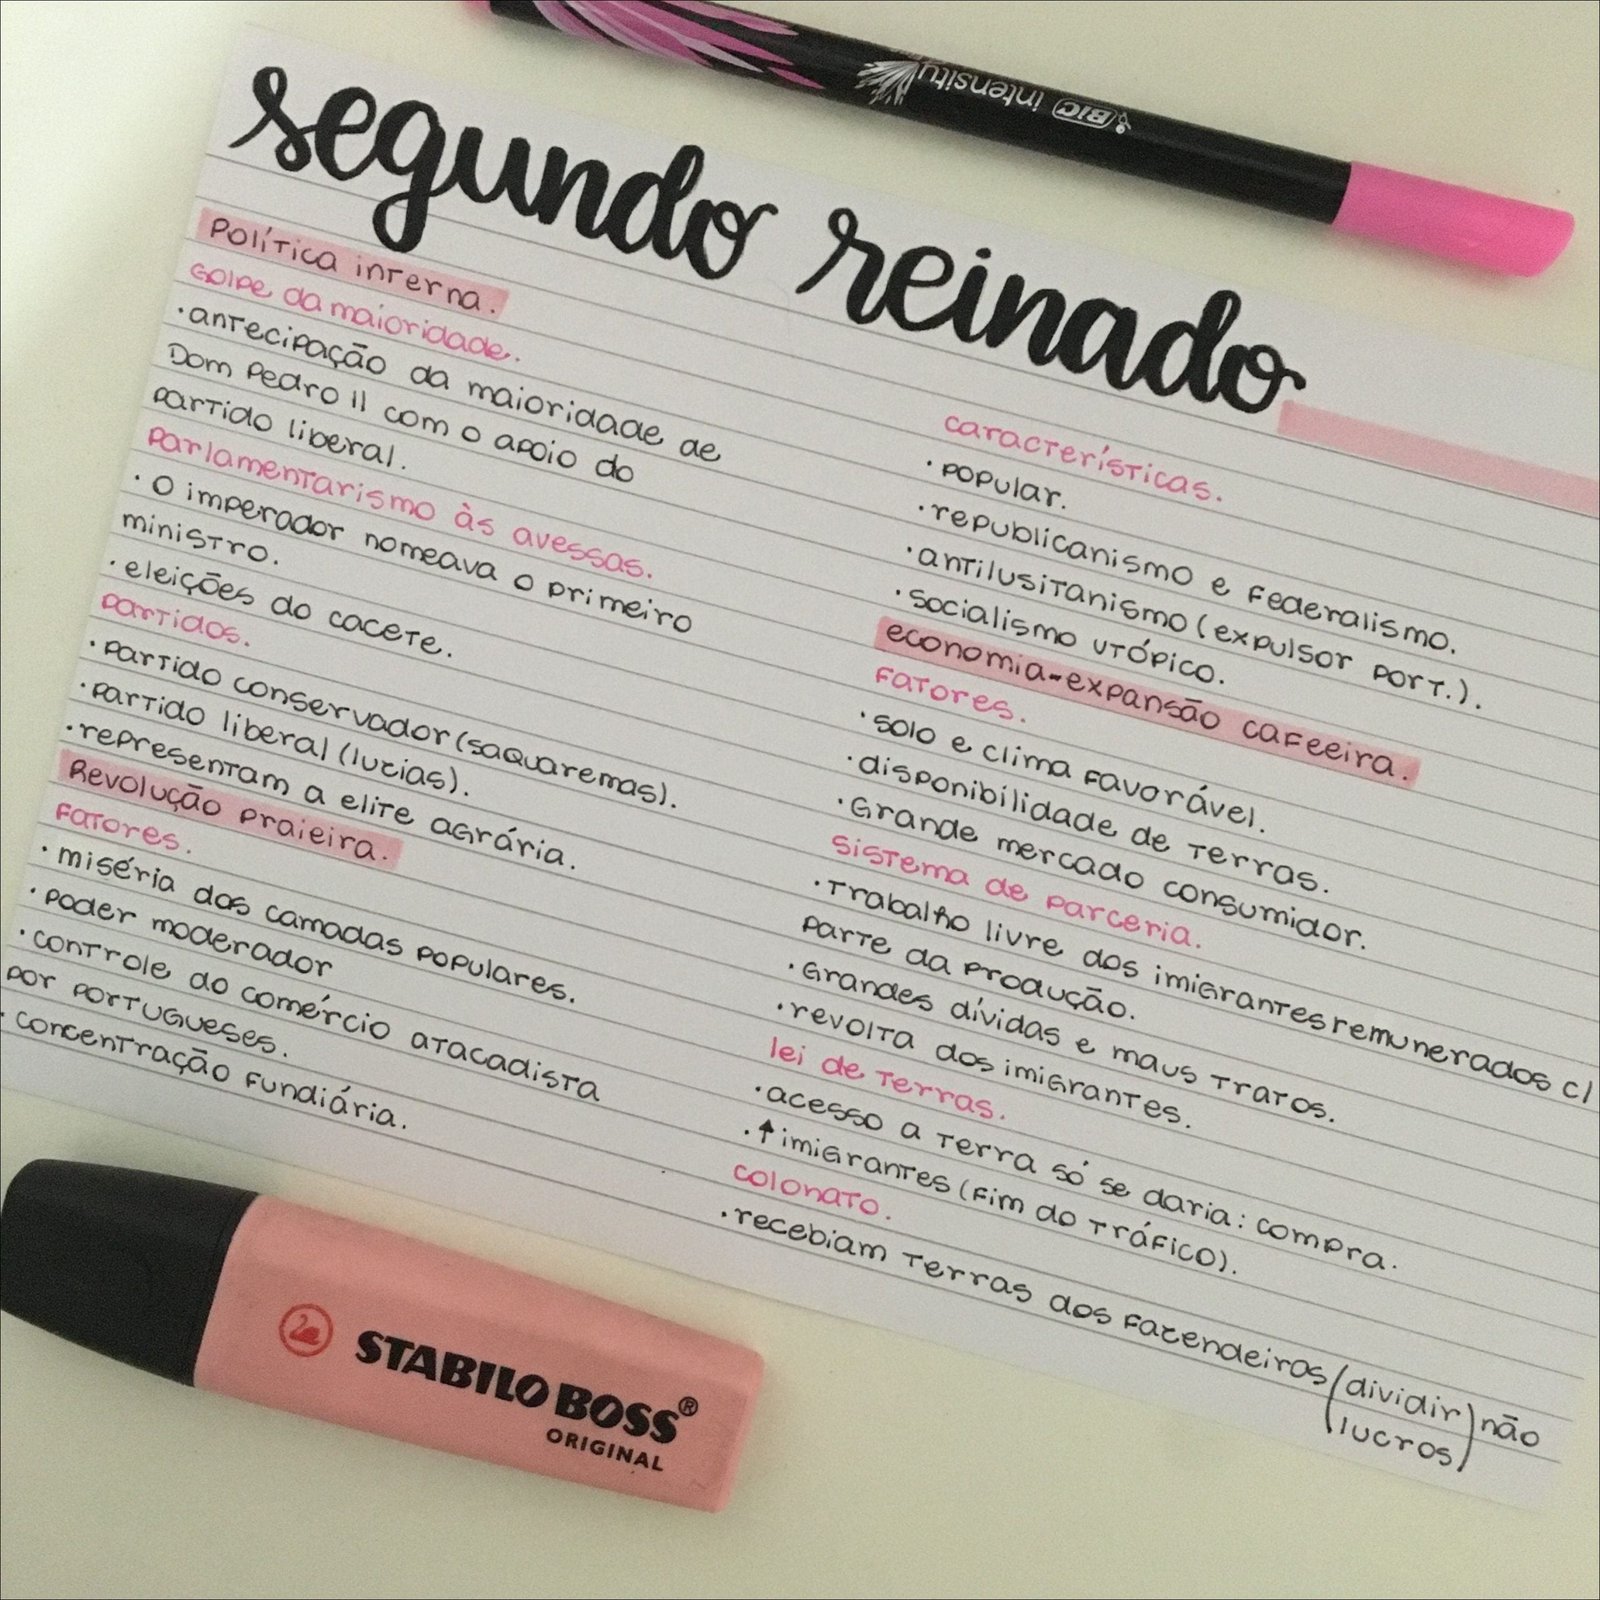 segundo reinado
Política interna.
Golpe da maioridade.
·antecipação da maioridade de
Dom Pedro II com o apoio do
partido liberal.
parlamentarismo às avessas.
·O imperador nomeava o primeiro
ministro.
·eleições do cacete.
partidos.
·partido conservador (saquaremas).
·partido liberal (luzias).
·representam a elite agrária.
Revolução praieira.
fatores.
·miséria das camadas populares.
·poder moderador
·controle do comércio atacadista
por portugueses.
·concentração fundiária.
características.
·popular.
·republicanismo e federalismo.
·antilusitanismo (expulsor port.).
·socialismo utópico.
economia-expansão cafeeira.
fatores.
·solo e clima favorável.
·disponibilidade de terras.
·Grande mercado consumidor.
sistema de parceria.
·trabalho livre dos imigrantes remunerados c/
parte da produção.
·Grandes dívidas e maus tratos.
·revolta dos imigrantes.
lei de terras.
·acesso a terra só se daria: compra.
·↑imigrantes (fim do tráfico).
colonato.
·recebiam terras dos fazendeiros (dividir) não
lucros
BIC intensity
STABILO BOSS®
ORIGINAL